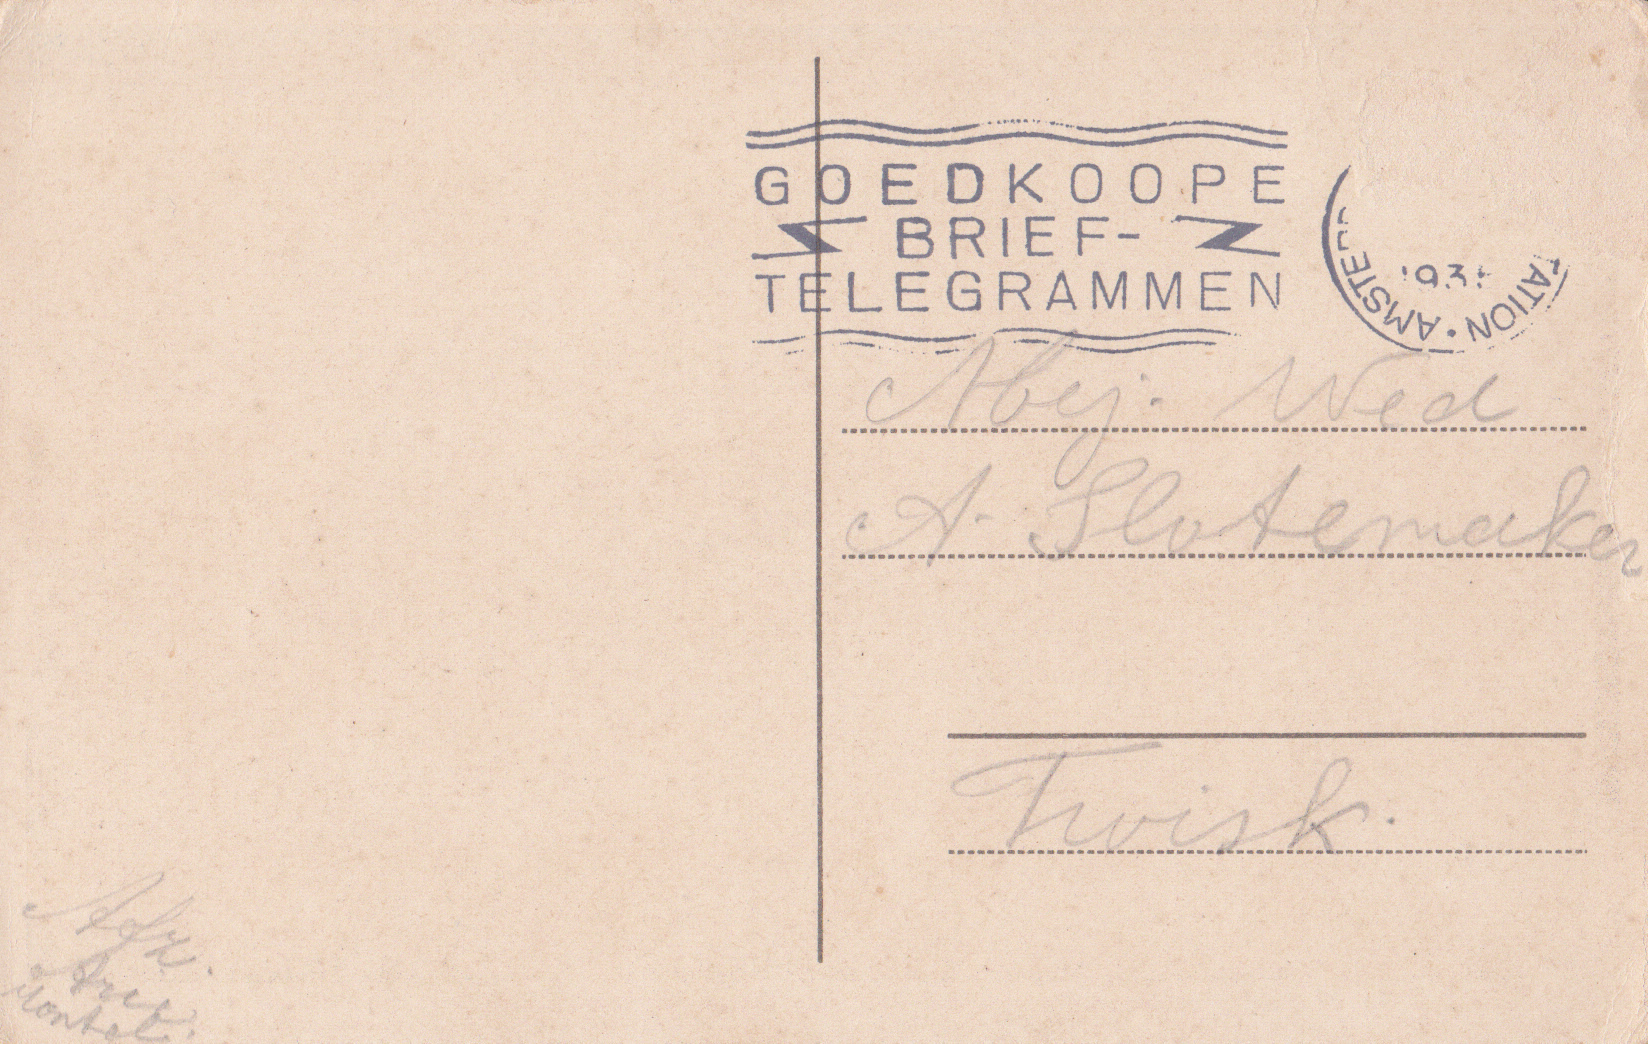 GOEDKOOPE
BRIEF-
TELEGRAMMEN
AMSTE TATION
Mej. Wed
A. Slotemaker
Twisk.
Afz.